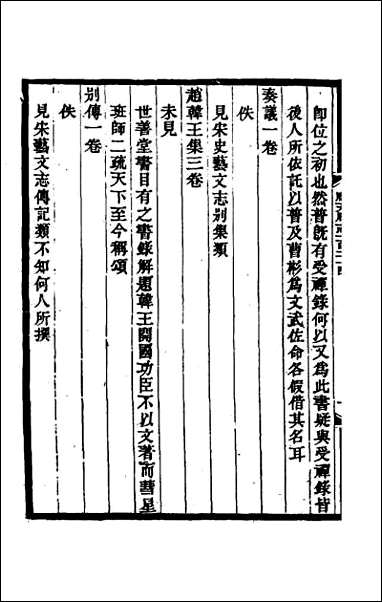 卽位之初也然普旣有受禪錄何以又爲此書疑與受禪錄皆
後人所依託以普及曹彬爲文武佐命各假借其名耳
奏議一卷
佚
見宋史藝文志别集類
趙韓王集三卷
未見
世善堂書目有之書錄解題韓王開國功臣不以文著而彗星
班師二疏天下至今稱頌
别傳一卷
佚
見宋藝文志傳記類不知何人所撰